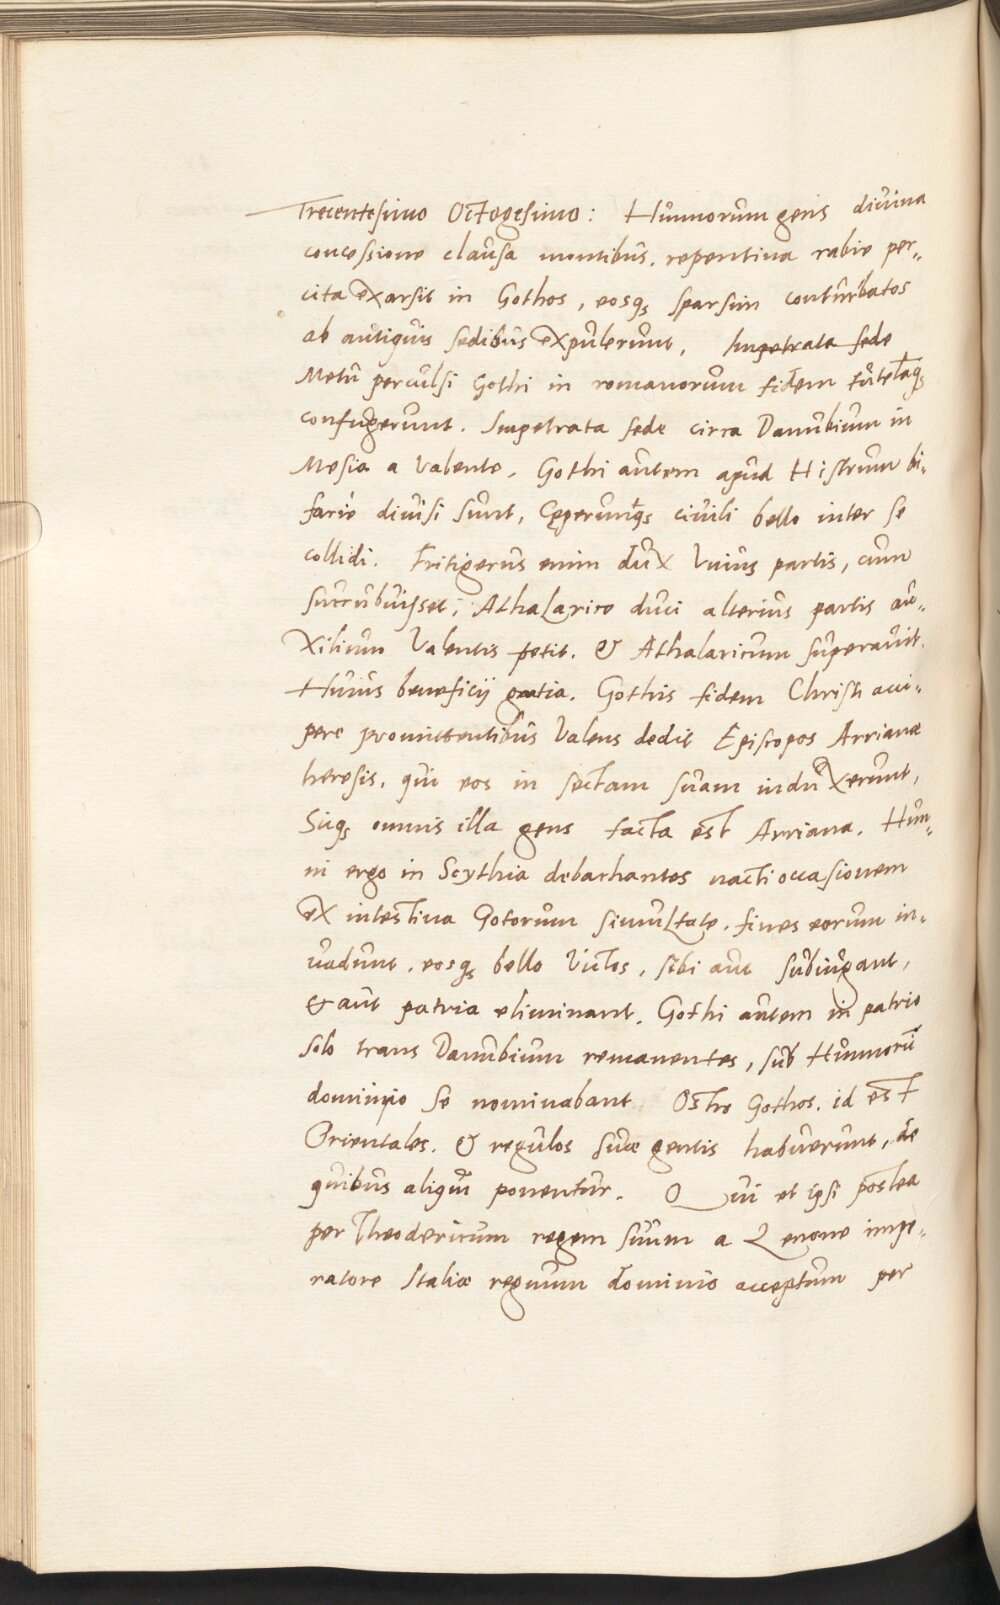 Trecentesimo Octogesimo: Hunnorum gens divina
concessione clausa montibus. repentina rabie per-
cita exarsit in Gothos, eosq; sparsim conturbatos
ab antiquis sedibus expulerunt. Impetrata sede
Metu perculsi Gothi in romanorum fidem tutelaq;
confugerunt. Impetrata sede circa Danubium in
Mesia a Valente. Gothi autem apud Histrum bi-
farie divisi sunt, Ceperuntq; civili bello inter se
collidi. Fritigerus enim dux Unius partis, cum
succubuisset, Athalarico duci alterius partis au-
xilium Valentis petit. & Athalaricum superavit.
Huius beneficij gratia. Gothis fidem Christi acci-
pere promittentibus Valens dedit Episcopos Arrianæ
heresis. qui eos in sectam suam induxerunt,
Sicq; omnis illa gens facta est Arriana. Hun-
ni ergo in Scythia debachantes nacti occasionem
ex intestina Gotorum simultate. fines eorum in-
vadunt. eosq; bello Victos, sibi aut subiugant,
& aut patria eliminant. Gothi autem in patrio
solo trans Danubium remanentes, sub Hunnorū
dominio se nominabant Ostro Gothos. id est
Orientales. & regulos suæ gentis habuerunt, de
quibus aliqui ponentur. Qui et ipsi postea
per Theodericum regem suum a Zenone impe-
ratore Italiæ regnum dominio acceptum per